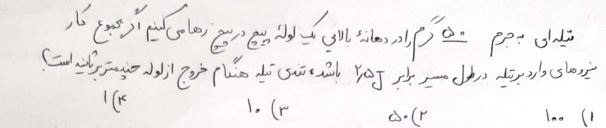 تیله‌ای به جرم ۵۰ گرم را در دهانهٔ بالایی یک لولهٔ پیچ در پیچ رها می‌کنیم اگر مجموع کار
نیروهای وارد بر تیله در طول مسیر برابر ۲٫۵J باشد، تندی تیله هنگام خروج از لوله چند متر بر ثانیه است؟
۱) ۱۰۰ ۲) ۵۰ ۳) ۱۰ ۴) ۱